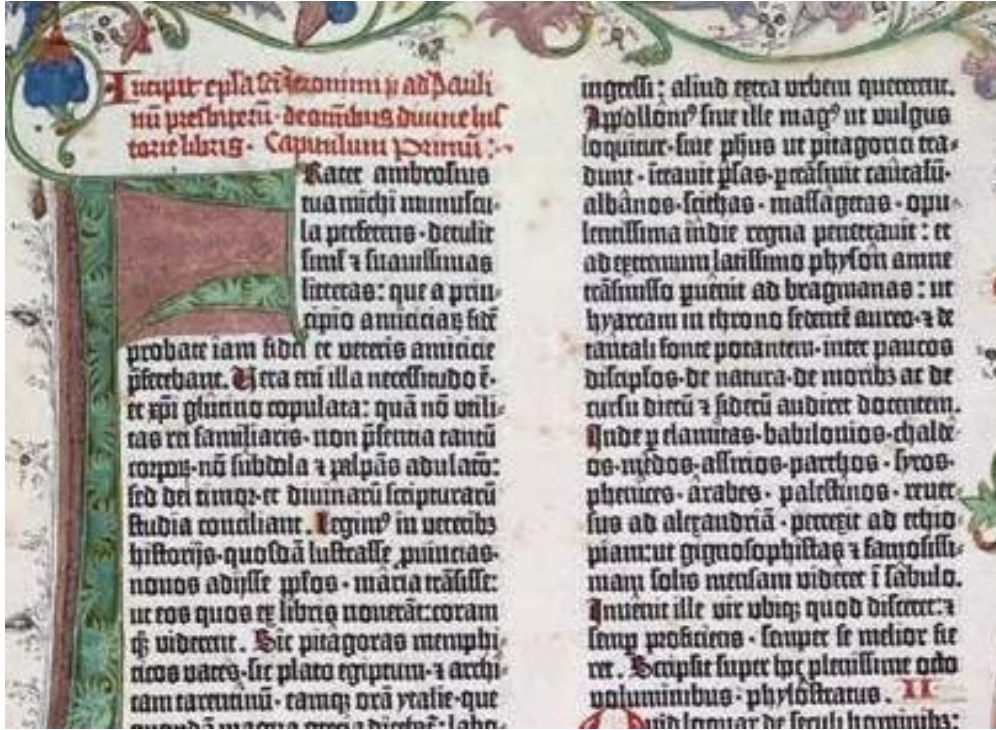 Incipit epl̄a sc̄i Jeronimi p̄ ad Pauli
nū presbiterū · de omībus diuine his
torie libris · Capitulum Primū :·
Rater ambrosius
tua michi munuscu⸗
la perferens · detulit
siml̄ ⁊ suauissimas
litteras: que a prin⸗
cipio amiciciaꝝ fidē
probate iam fidei et veteris amicicie
p̄ferebant. Vera enī illa necessitudo ē·
et xp̄i glutino copulata: quā nō vtili⸗
tas rei familiaris · non p̄sentia tantū
corpoꝝ · nō subdola ⁊ palpās adulatō:
sed dei timor · et diuinarū scripturarū
studia conciliant. Legimꝰ in veteribꝫ
historijs · quosdā lustrasse ꝓuincias·
nouos adijsse ppl̄os · maria trāsisse:
ut eos quos ex libris nouerāt: coram
qꝫ viderent. Sic pitagoras memphi⸗
ticos vates · sic plato egiptum · ⁊ archi⸗
tam tarentinū · eamqꝫ orā ytalie · que
quondā magna grecia dicebat̄: labo⸗
ingressi : aliud extra vrbem quererent.
Appollonꝰ siue ille magꝰ ut vulgus
loquitur · siue phus ut pitagorici tra⸗
dunt · ītrauit ꝑsas · ꝑtrāsiuit caucasū·
albānos · scithas · massagetas · opu⸗
lentissima indie regna penetrauit : et
ad extremum latissimo physon amne
trāsmisso ꝑuenit ad bragmanas : ut
hyarcam in throno sedentē aureo · ⁊ de
tantali fonte potantem · inter paucos
discipl̄os · de natura · de moribꝫ ac de
cursu dierū ⁊ siderū audiret docentem.
Inde ꝑ elamitas · babilonios · chalde⸗
os · medos · assirios · parthos · syros·
phenices · arabes · palestinos · reuer⸗
sus ad alexandriā · perrexit ad ethio⸗
piam: ut gignosophistas ⁊ famosissi⸗
mam solis mensam videret ī sabulo.
Inuenit ille vir vbiqꝫ quod disceret: ⁊
semꝑ proficiens · semper se melior fie⸗
ret. Scripsit super hoc plenissime octo
voluminibus · phylostratus. II
Quid loquar de seculi hominibꝫ: